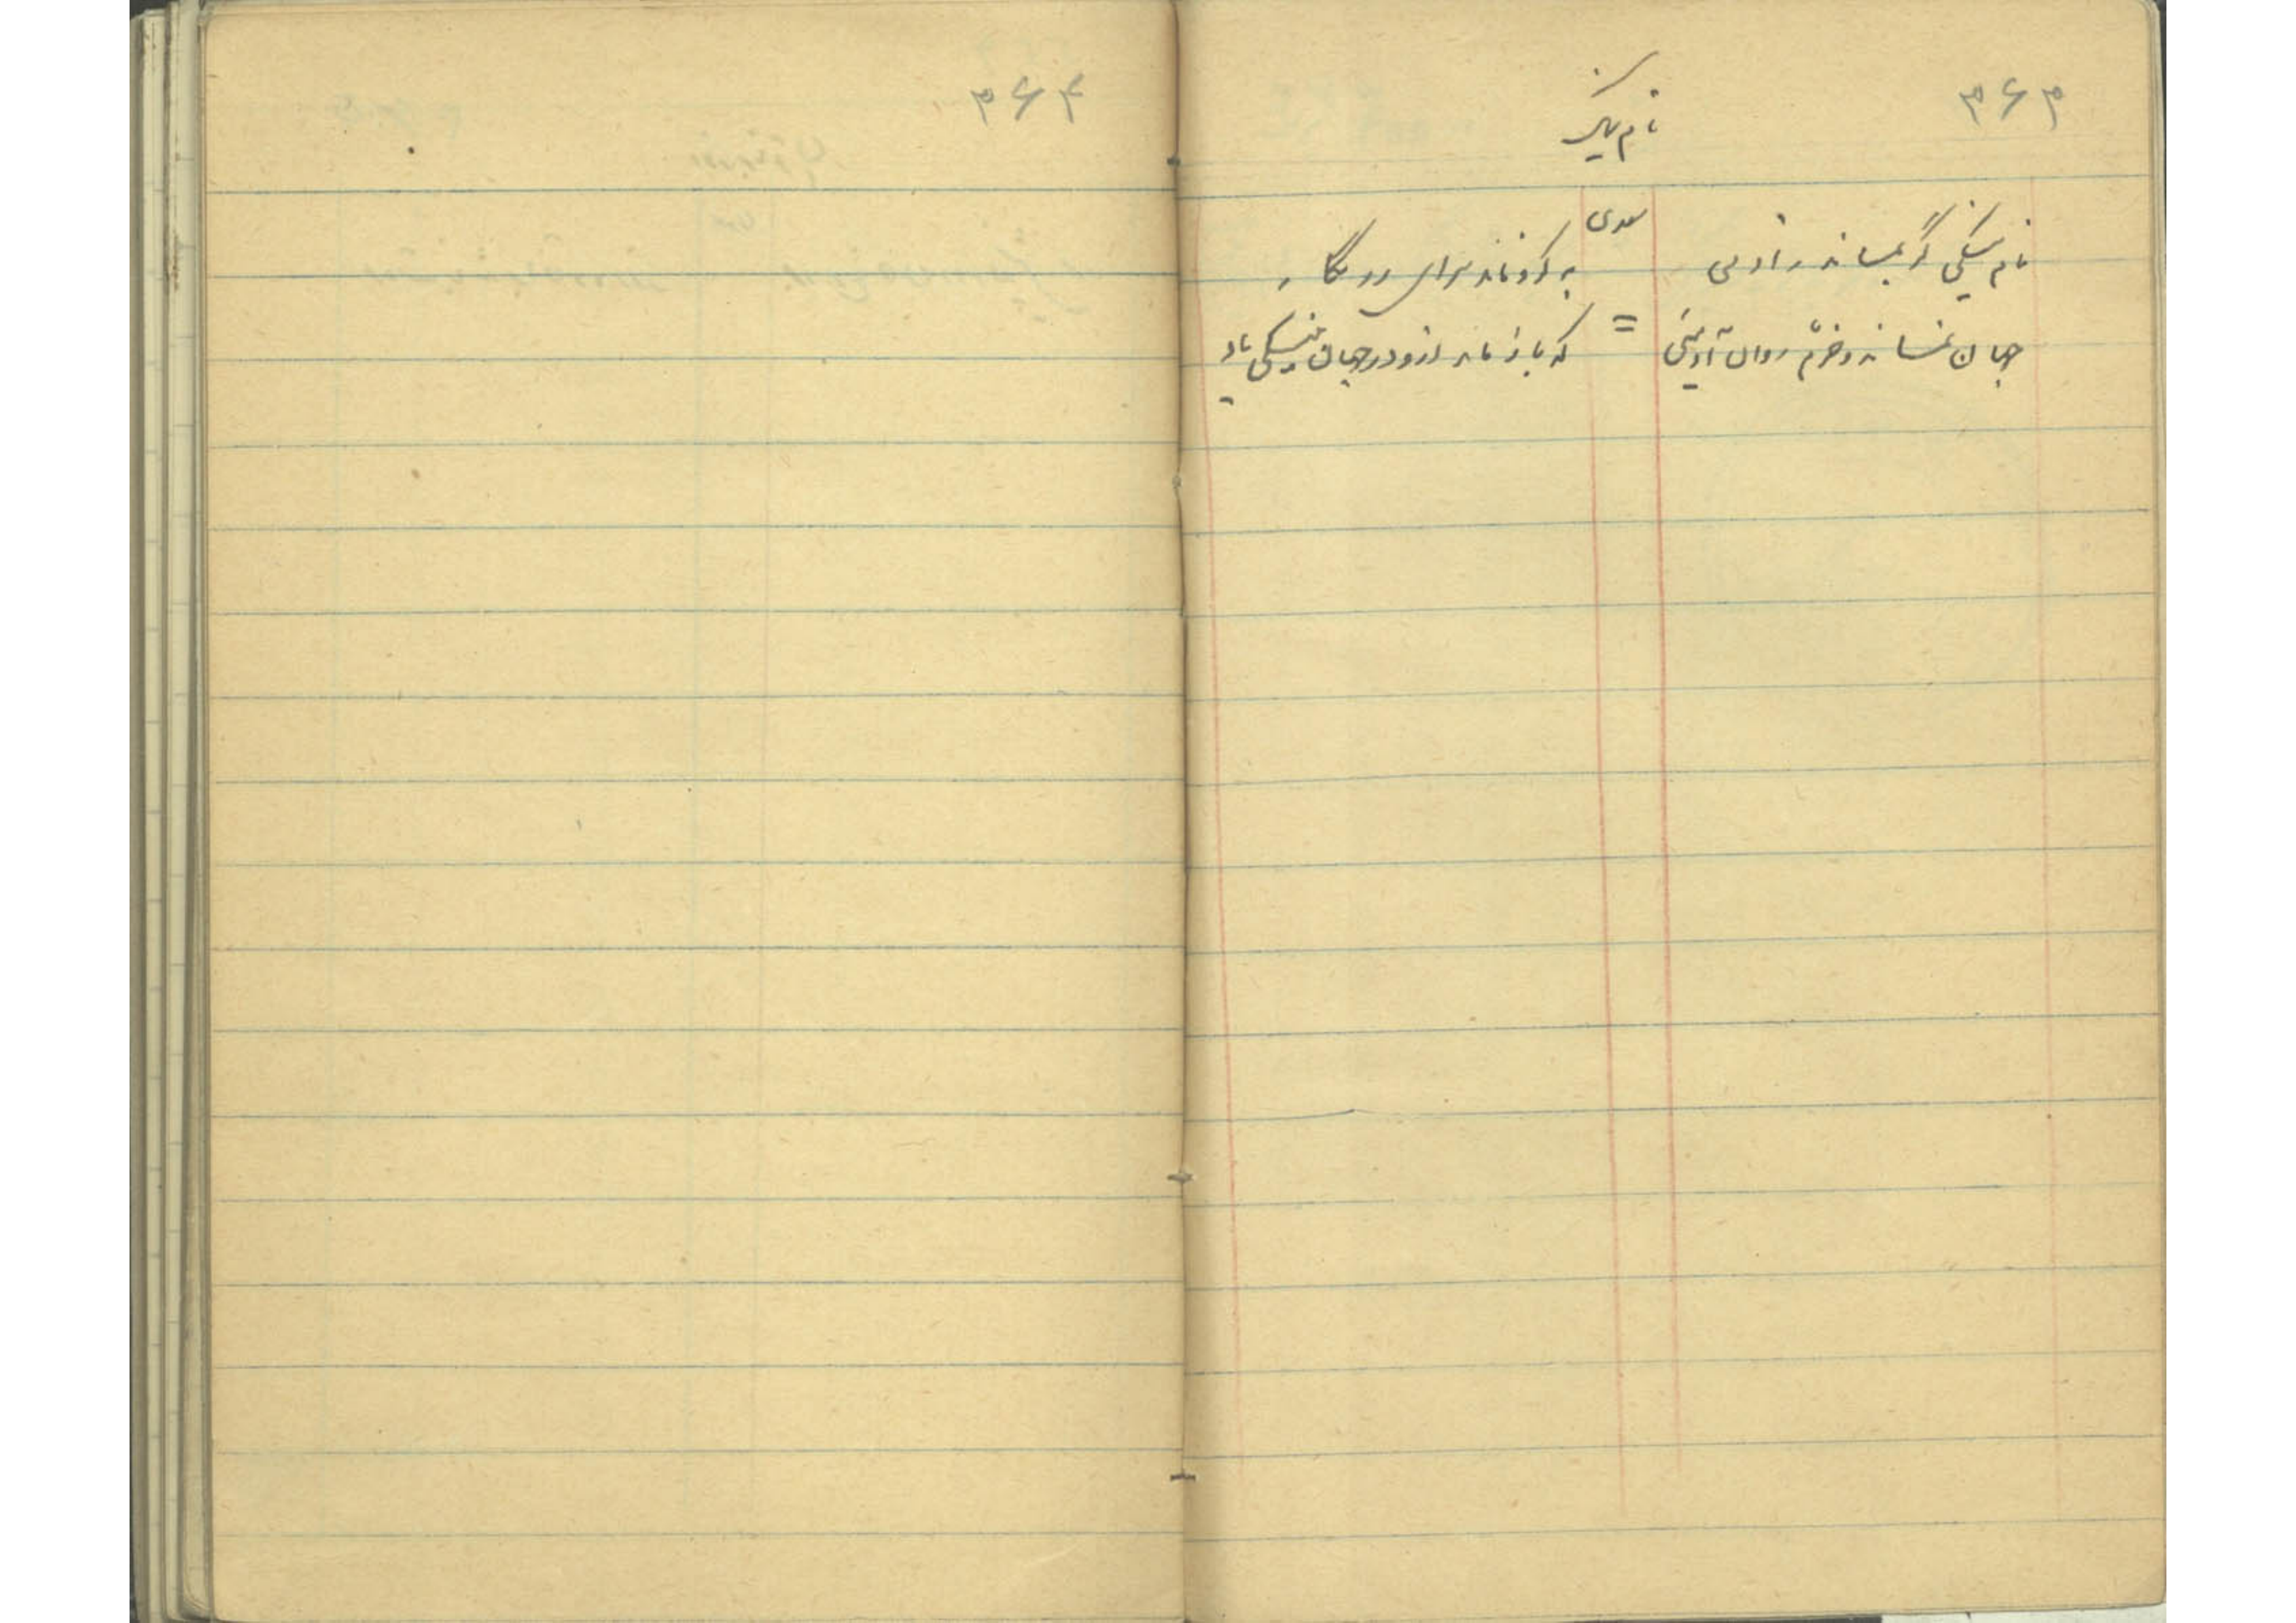 ۳۶۳
نام نیک
سعدی
نام نیکی گر بماند ز آدمی به کزو ماند سرای زرنگار
جهان نماند و خرم روان آدمئی = که باز ماند ازو در جهان به نیکی یاد
۳۶۴